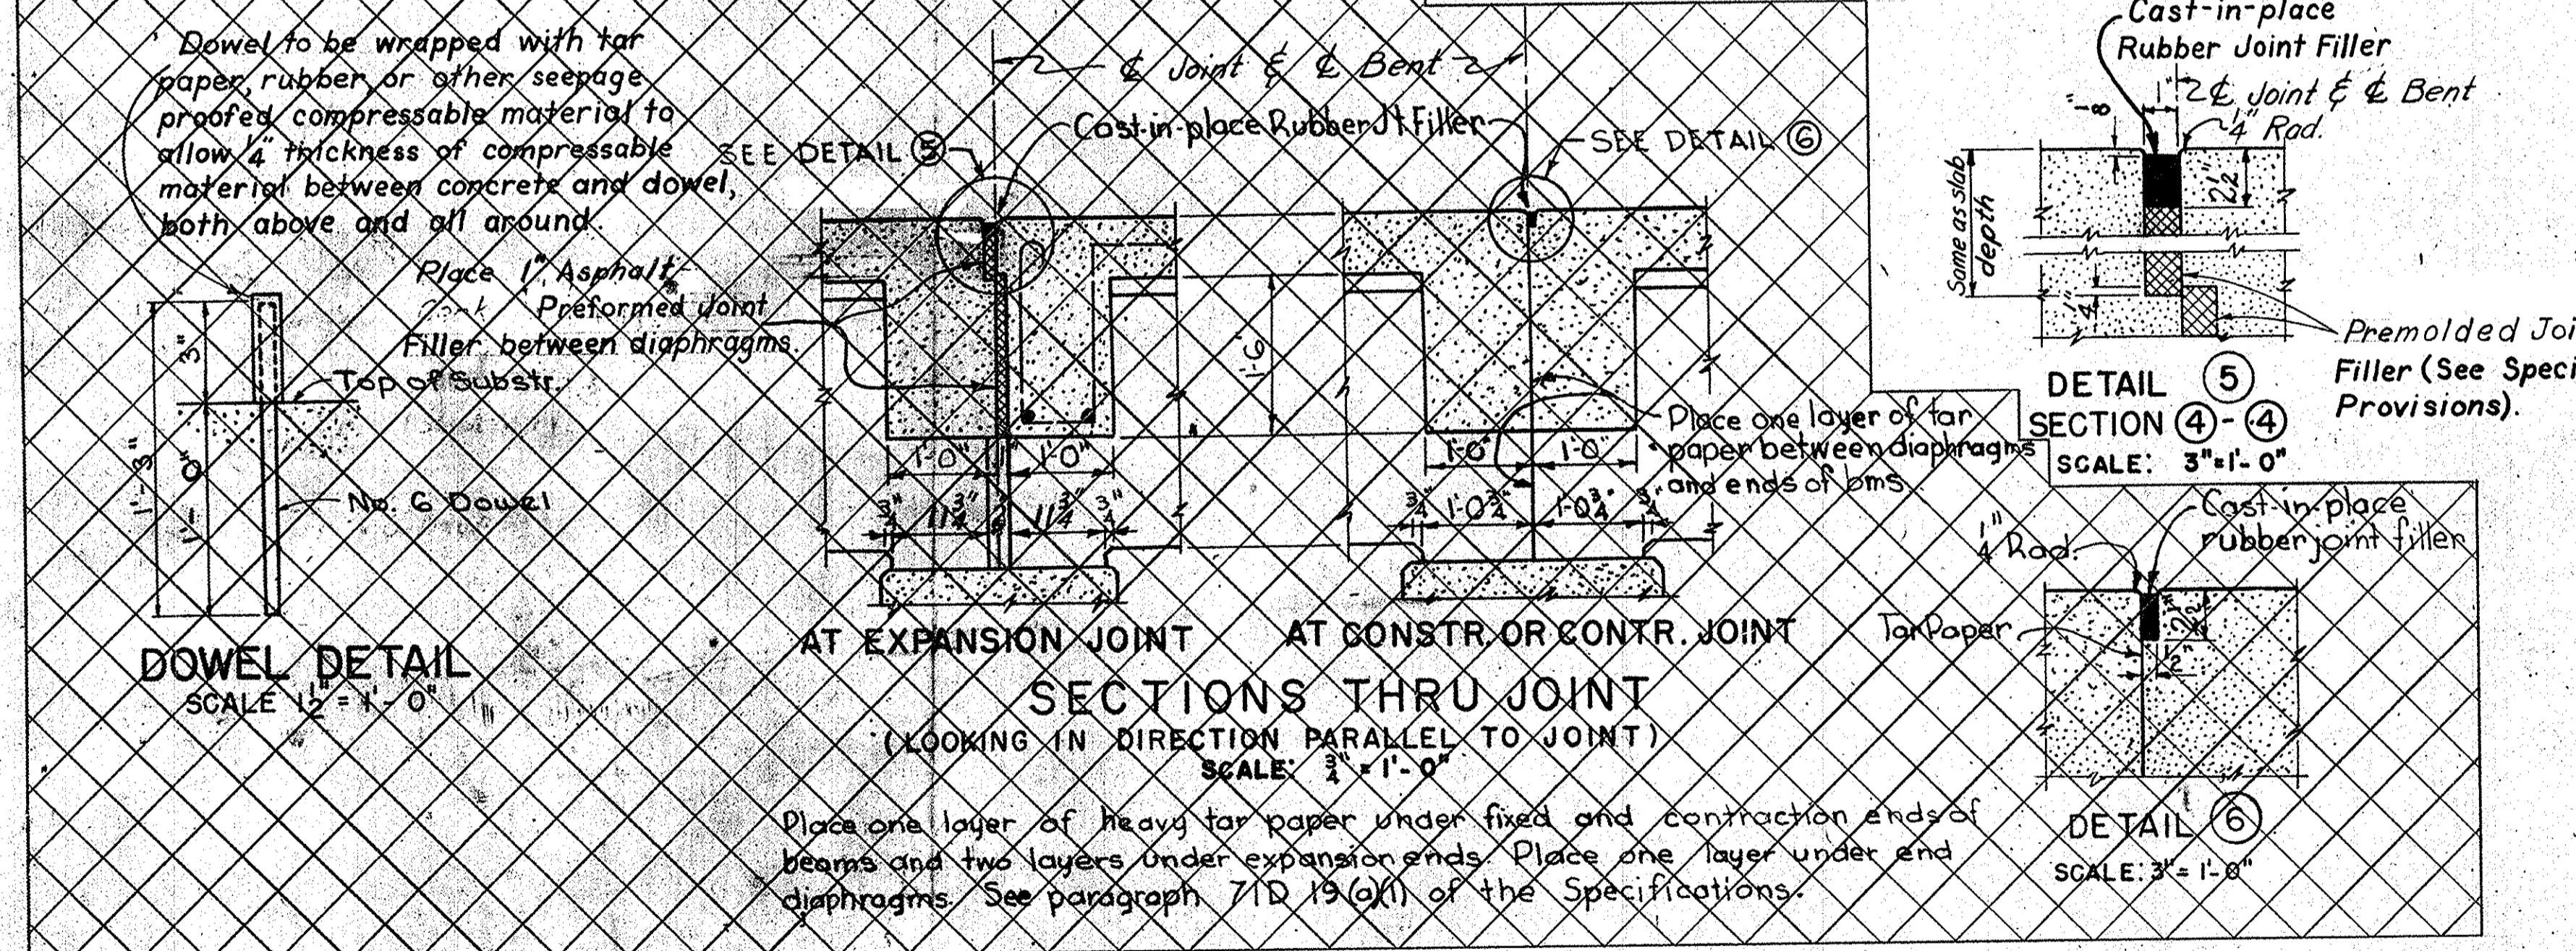 Dowel to be wrapped with tar
paper, rubber, or other seepage
proofed compressable material to
allow 1/4" thickness of compressable
material between concrete and dowel,
both above and all around.
3"
1'-3"
1'-0"
Top of Substr.
No. 6 Dowel
DOWEL DETAIL
SCALE 1 1/2" = 1'-0"
Place 1" Asphalt
Preformed Joint
Filler between diaphragms.
℄ Joint & ℄ Bent
Cast-in-place Rubber Jt Filler
SEE DETAIL 5
SEE DETAIL 6
1'-6"
1'-0" 1" 1'-0"
3/4" 11 3/4" 11 3/4" 3/4"
1'-0" 1'-0"
3/4" 1'-0 3/4" 1'-0 3/4" 3/4"
Place one layer of tar
paper between diaphragms
and ends of bms.
AT EXPANSION JOINT
AT CONSTR. OR CONTR. JOINT
SECTIONS THRU JOINT
(LOOKING IN DIRECTION PARALLEL TO JOINT)
SCALE: 3/4" = 1'-0"
Place one layer of heavy tar paper under fixed and contraction ends of
beams and two layers under expansion ends. Place one layer under end
diaphragms. See paragraph 71D 19(a)(1) of the Specifications.
Cast-in-place
Rubber Joint Filler
1"
℄ Joint & ℄ Bent
1/4" Rad.
1/8"
2 1/2"
Same as slab
depth
1/4"
Premolded Joi
Filler (See Speci
Provisions).
DETAIL 5
SECTION 4-4
SCALE: 3"=1'-0"
Cast-in-place
rubber joint filler
1/4" Rad.
2 1/2"
Tar Paper
1/2"
DETAIL 6
SCALE: 3" = 1'-0"